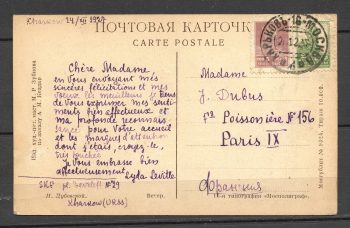 Kharkow 24/XII 1927
ПОЧТОВАЯ КАРТОЧКА
CARTE POSTALE
Chère Madame,
en vous envoyant mes
sincères félicitations et mes
voeux les meilleurs je tiens
de vous exprimer mes senti-
ments bien affectueux et
ma profonde reconnais-
sance pour votre accueil
et les marques d'attention
dont j'étais, croyez-le,
très touchée.
Je vous embrasse bien
affectueusement
Lyda
pl. №29
Kharkow (URSS)
Madame
J. Dubus
Poissonière № 156
Paris IX
Франция
Н. Дубовской.
Вечер.